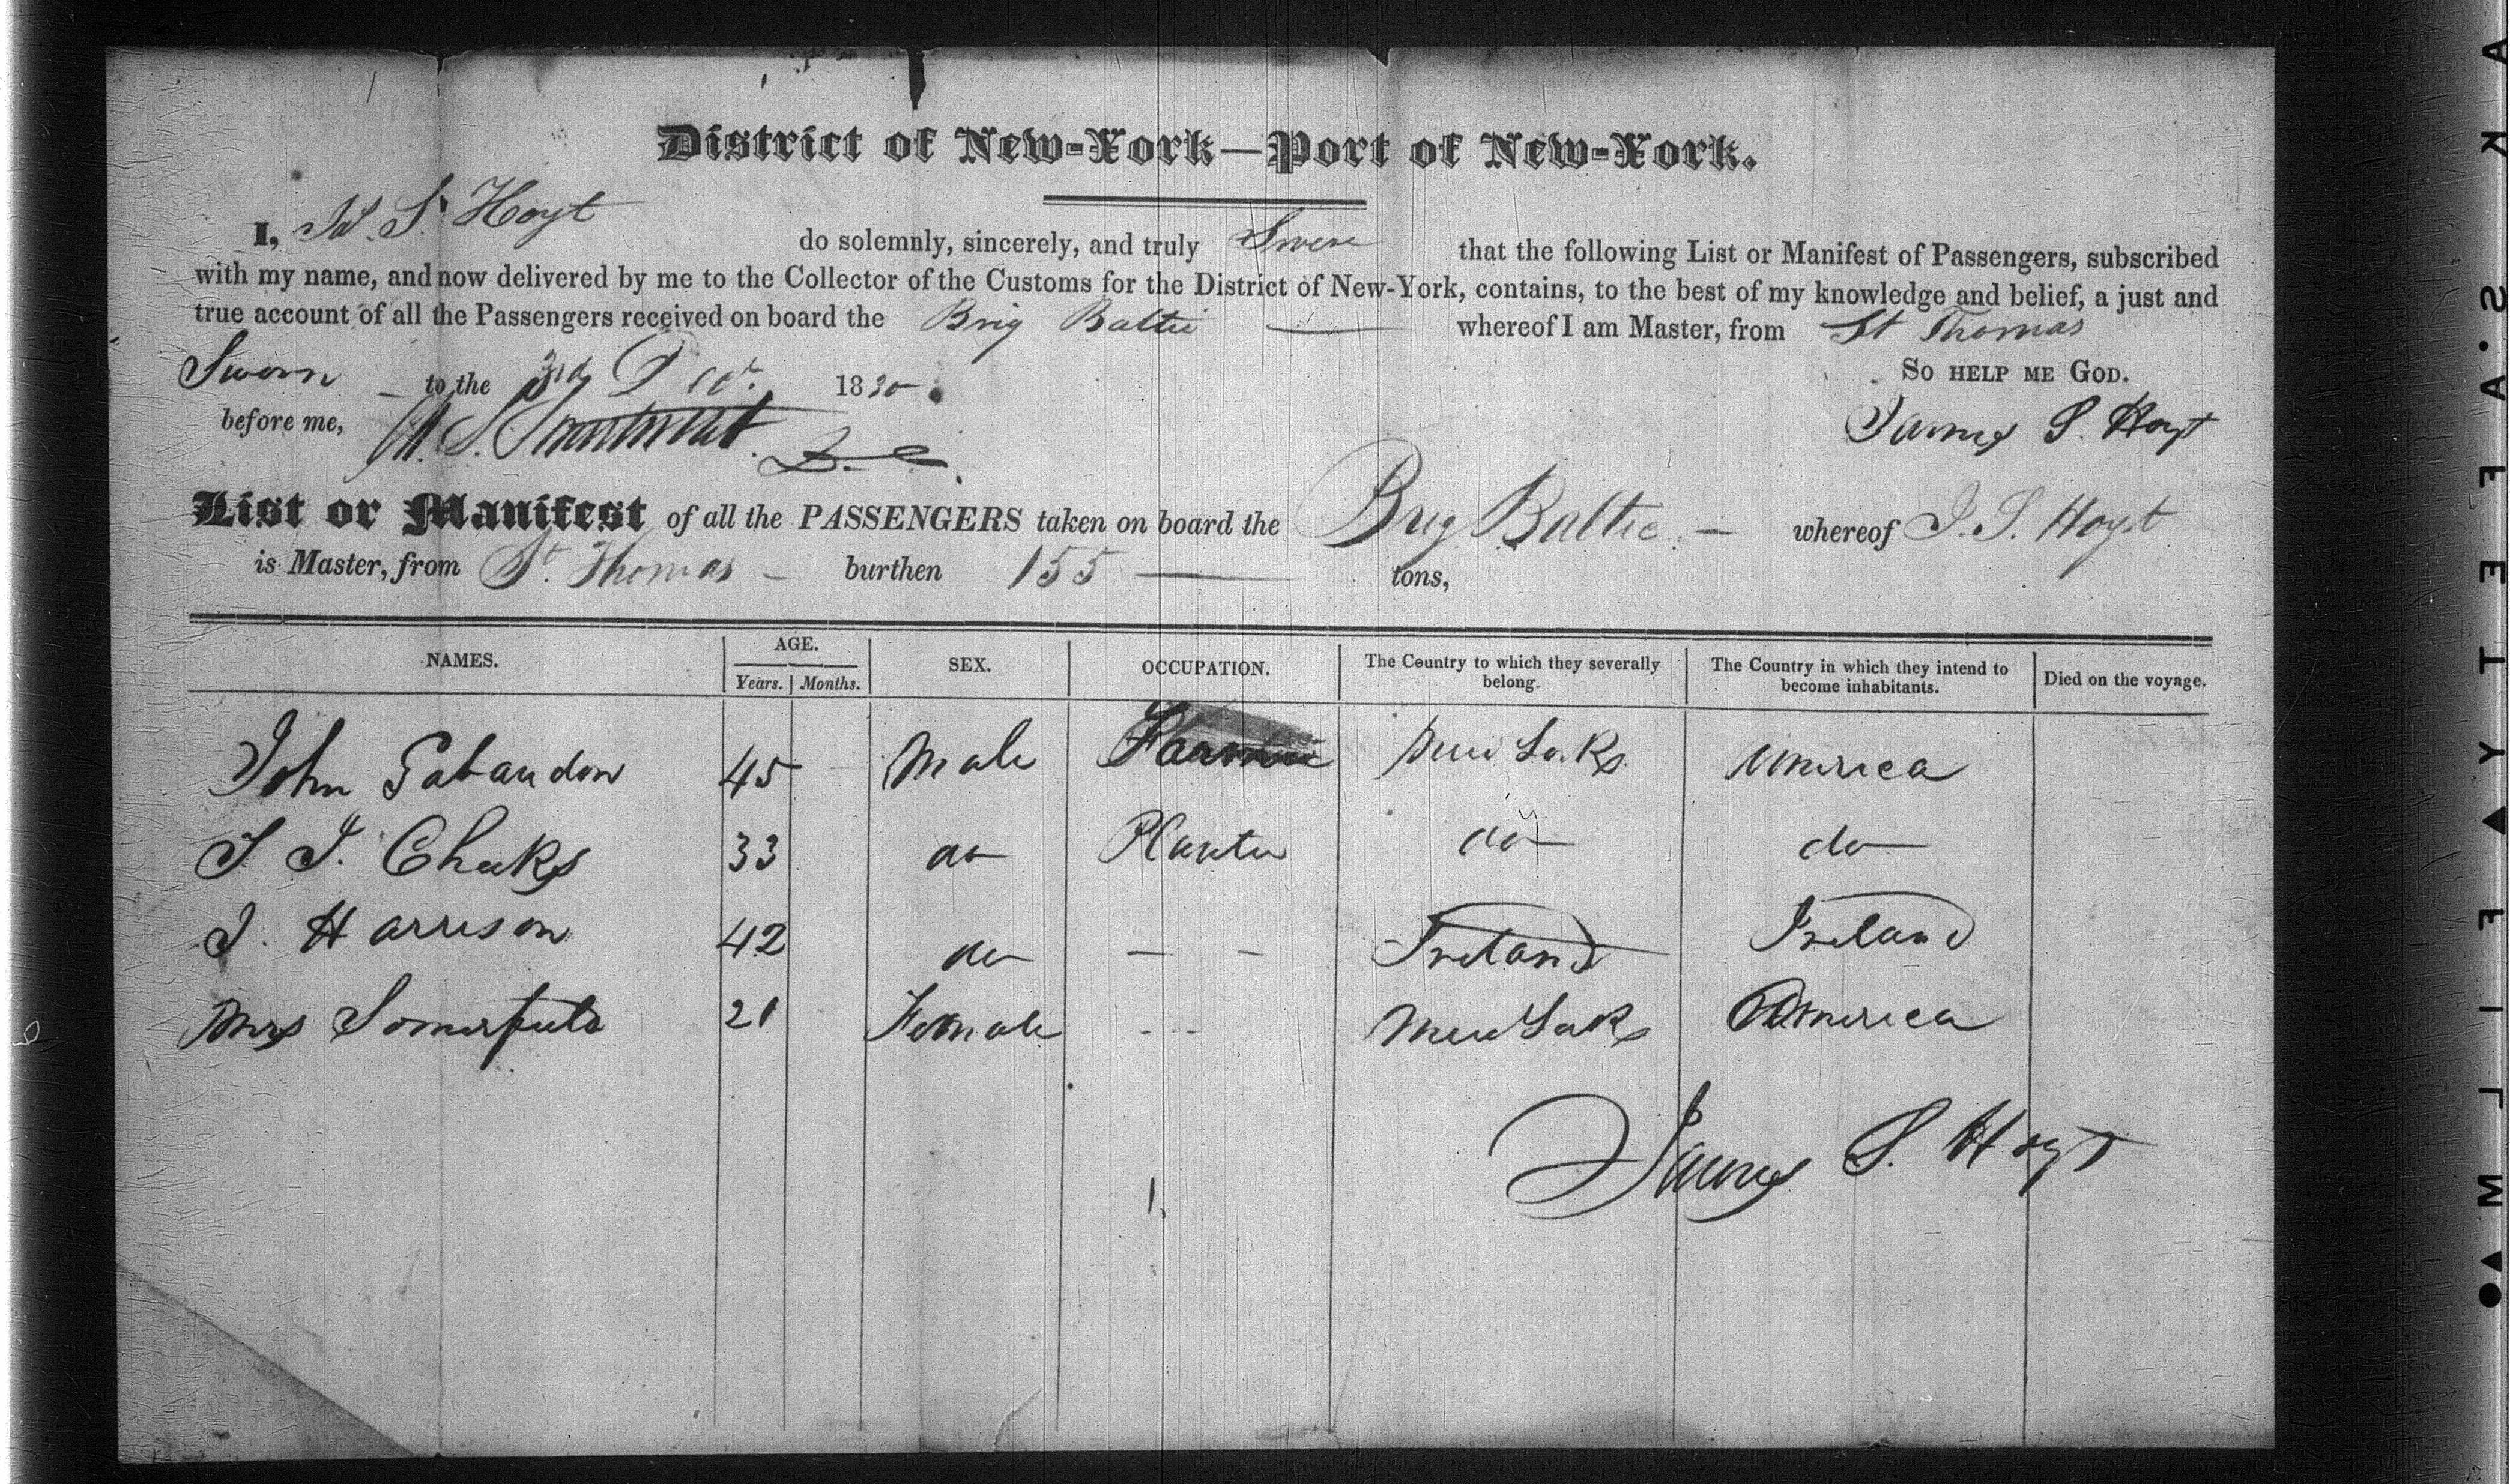 District of New-York—Port of New-York.
I, Js. S. Hoyt do solemnly, sincerely, and truly Swear that the following List or Manifest of Passengers, subscribed
with my name, and now delivered by me to the Collector of the Customs for the District of New-York, contains, to the best of my knowledge and belief, a just and
true account of all the Passengers received on board the Brig Baltic — whereof I am Master, from St Thomas
Sworn to the 3rd Decr. 1830 So HELP ME GOD.
before me, James S. Hoyt
List or Manifest of all the PASSENGERS taken on board the Brig Baltic — whereof J. S. Hoyt
is Master, from St. Thomas — burthen 155 — tons,
NAMES. AGE. SEX. OCCUPATION. The Country to which they severally belong. The Country in which they intend to become inhabitants. Died on the voyage.
Years. Months.
John Gabaudon 45 Male New York America
J. J. Cheeks 33 do Planter do do
J. Harrison 42 do — — Ireland Ireland
Mrs Somerfield 21 Female - - New York America
James S. Hoyt